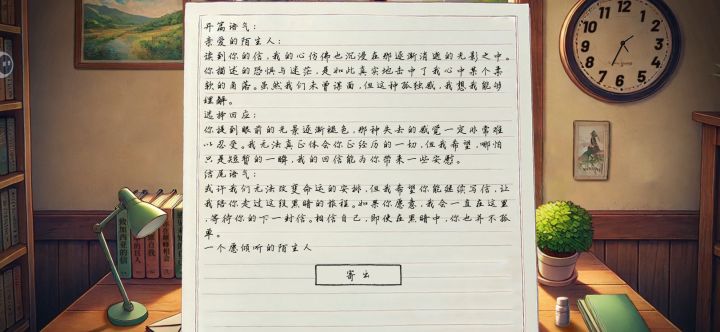 开篇语气：
亲爱的陌生人：
读到你的信，我的心仿佛也沉浸在那逐渐消逝的光影之中。
你描述的恐惧与迷茫，是如此真实地击中了我心中某个柔
软的角落。虽然我们未曾谋面，但这种孤独感，我想我能够
理解。
选择回应：
你提到眼前的光景逐渐褪色，那种失去的感觉一定非常难
以忍受。我无法真正体会你正经历的一切，但我希望，哪怕
只是短暂的一瞬，我的回信能为你带来一些安慰。
信尾语气：
或许我们无法改变命运的安排，但我希望你能继续写信，让
我陪你走过这段黑暗的旅程。如果你愿意，我会一直在这里
，等待你的下一封信。相信自己，即使在黑暗中，你也并不孤
单。
一个愿倾听的陌生人
寄出
12
1
2
3
4
5
6
7
8
9
10
11